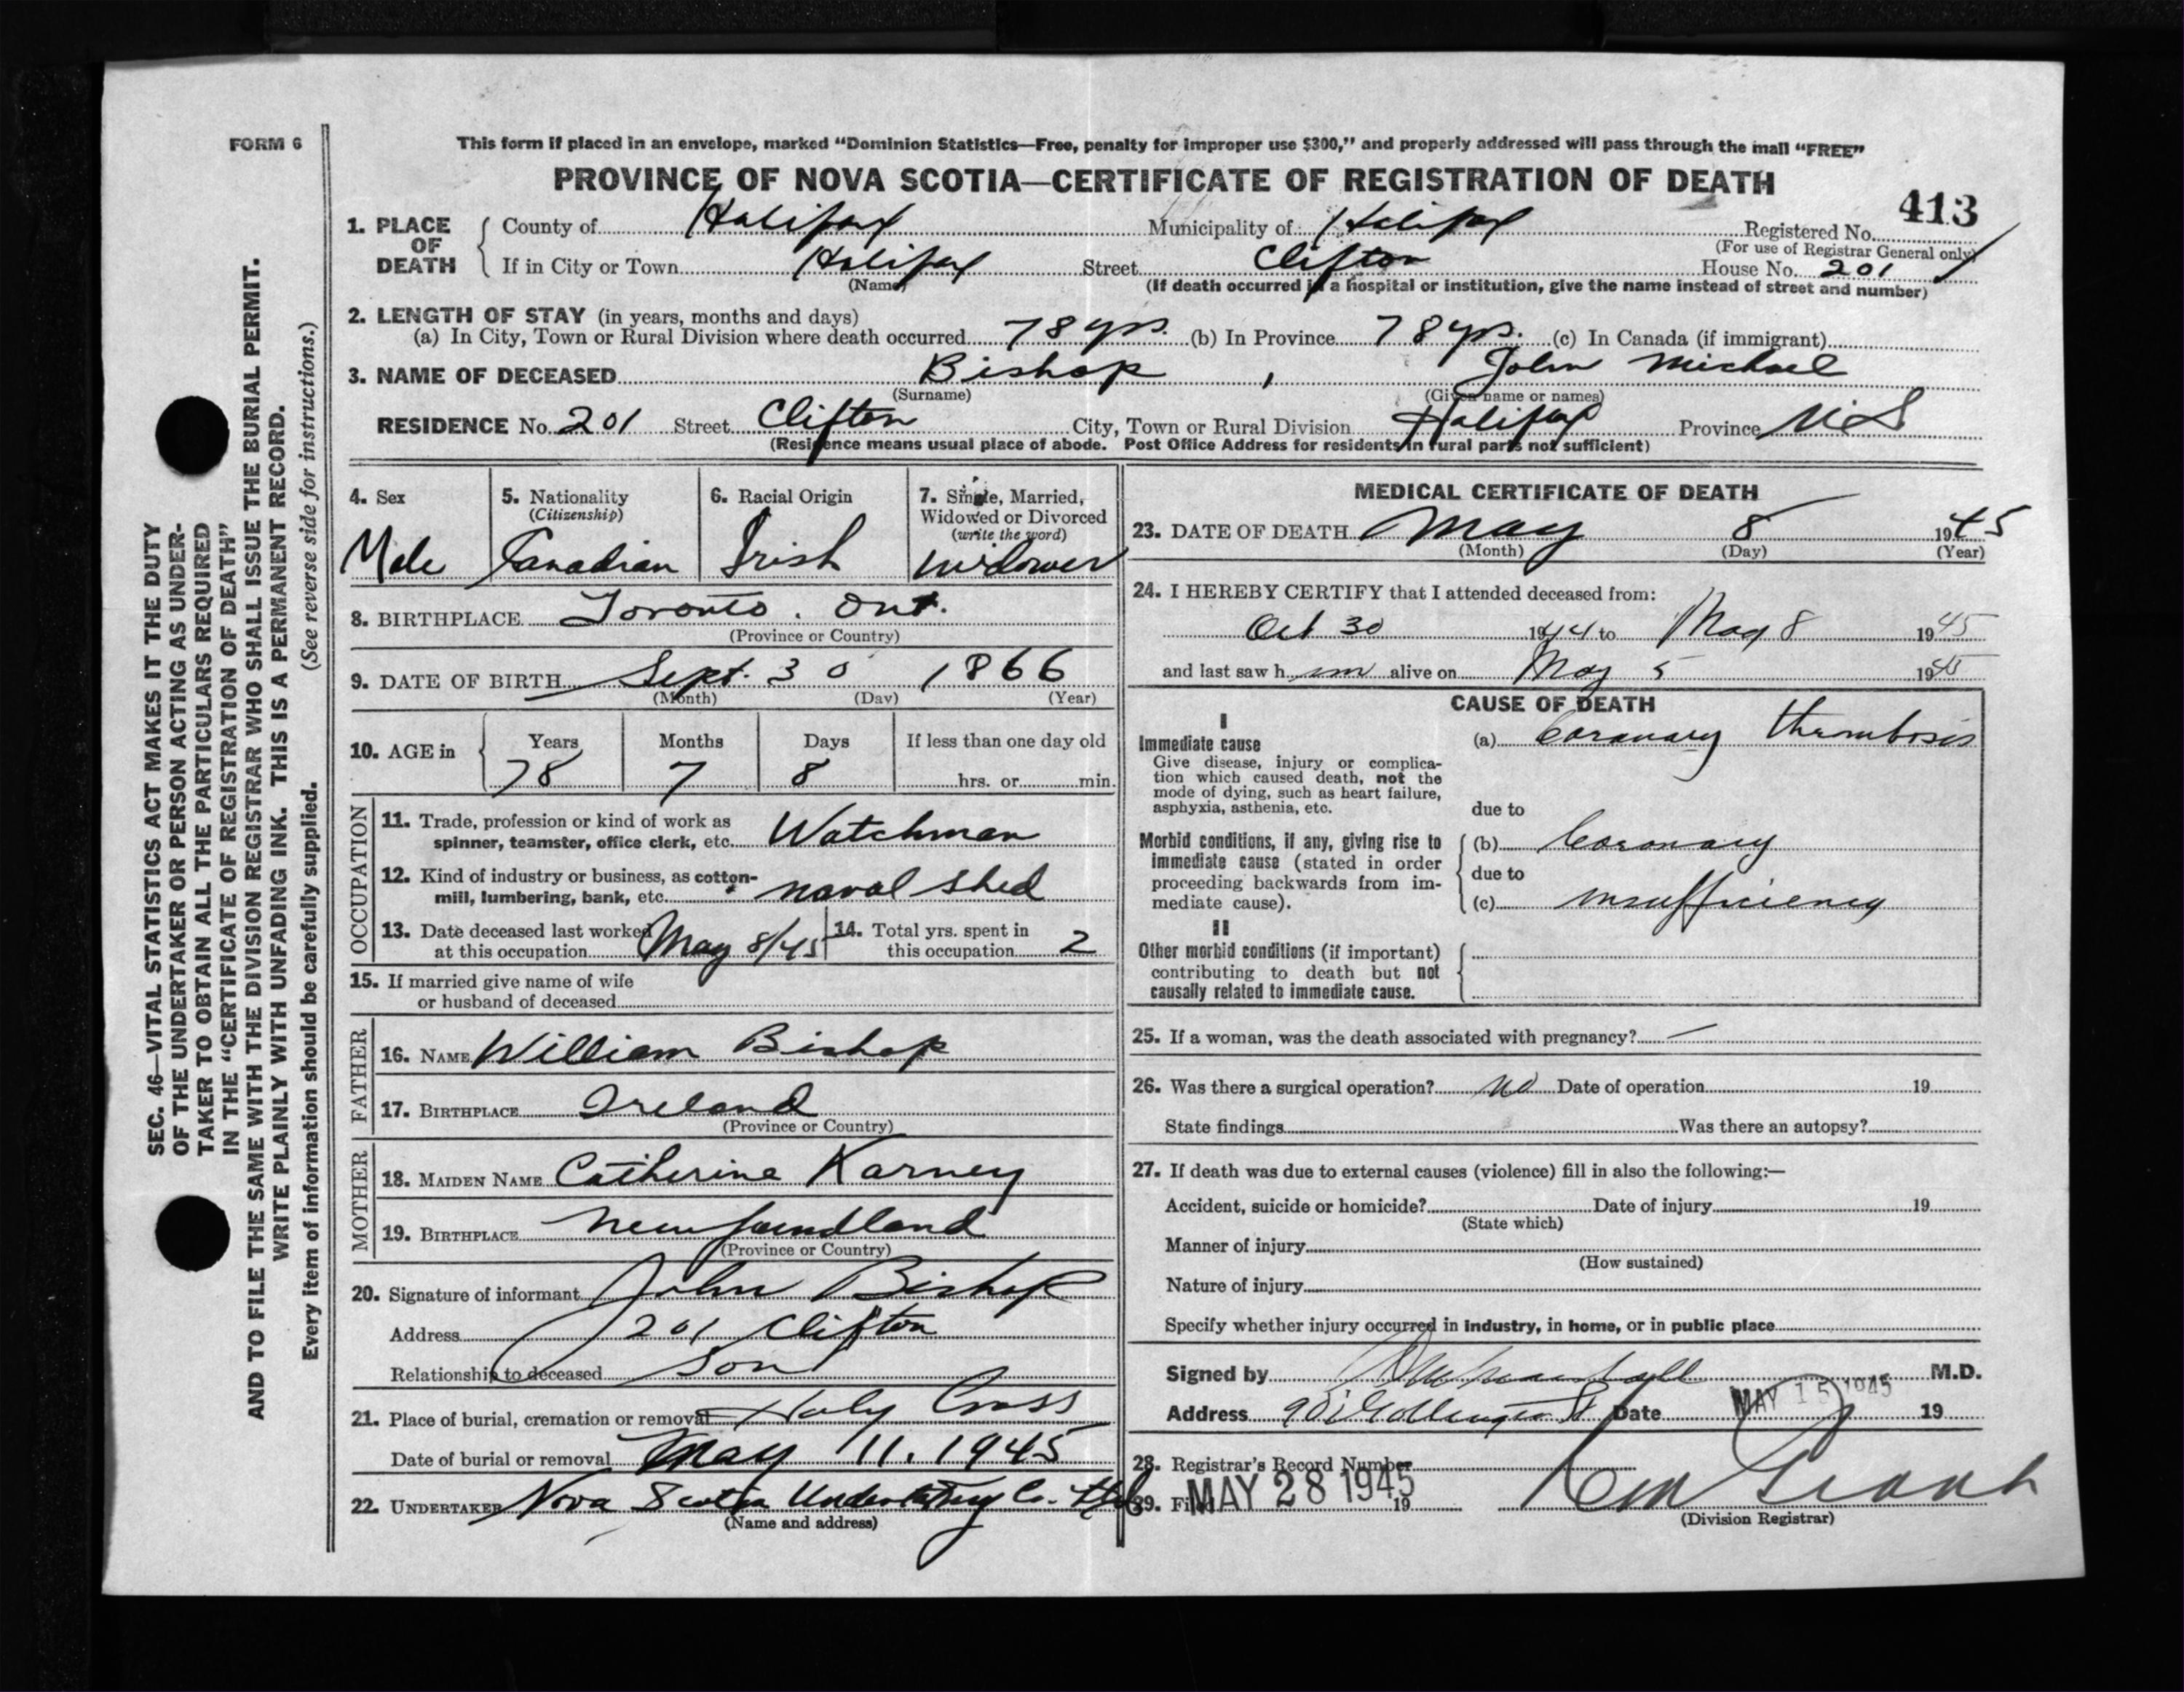 FORM 6
This form if placed in an envelope, marked "Dominion Statistics—Free, penalty for improper use $300," and properly addressed will pass through the mail "FREE"
PROVINCE OF NOVA SCOTIA—CERTIFICATE OF REGISTRATION OF DEATH
413
1. PLACE OF DEATH
County of Halifax Municipality of Halifax Registered No.
(For use of Registrar General only)
If in City or Town Halifax Street Clifton House No. 201
(Name) (If death occurred in a hospital or institution, give the name instead of street and number)
2. LENGTH OF STAY (in years, months and days)
(a) In City, Town or Rural Division where death occurred 78 yrs. (b) In Province 78 yrs. (c) In Canada (if immigrant)
3. NAME OF DECEASED Bishop , John Michael
(Surname) (Given name or names)
RESIDENCE No. 201 Street Clifton City, Town or Rural Division Halifax Province N.S
(Residence means usual place of abode. Post Office Address for residents in rural parts not sufficient)
4. Sex
Male
5. Nationality
(Citizenship)
Canadian
6. Racial Origin
Irish
7. Single, Married,
Widowed or Divorced
(write the word)
Widower
8. BIRTHPLACE Toronto. Ont.
(Province or Country)
9. DATE OF BIRTH Sept. 30 1866
(Month) (Day) (Year)
10. AGE in
Years Months Days If less than one day old
78 7 8 hrs. or min.
OCCUPATION
11. Trade, profession or kind of work as
spinner, teamster, office clerk, etc. Watchman
12. Kind of industry or business, as cotton-
mill, lumbering, bank, etc. naval shed
13. Date deceased last worked
at this occupation May 8/45
14. Total yrs. spent in
this occupation 2
15. If married give name of wife
or husband of deceased
FATHER
16. NAME William Bishop
17. BIRTHPLACE Ireland
(Province or Country)
MOTHER
18. MAIDEN NAME Catherine Karney
19. BIRTHPLACE Newfoundland
(Province or Country)
20. Signature of informant John Bishop
Address 201 Clifton
Relationship to deceased Son
21. Place of burial, cremation or removal Holy Cross
Date of burial or removal May 11. 1945
22. UNDERTAKER Nova Scotia Undertaking Co. Ltd
(Name and address)
MEDICAL CERTIFICATE OF DEATH
23. DATE OF DEATH May 8 1945
(Month) (Day) (Year)
24. I HEREBY CERTIFY that I attended deceased from:
Oct 30 1944 to May 8 1945
and last saw him alive on May 5 1945
CAUSE OF DEATH
I
Immediate cause
Give disease, injury or complica-
tion which caused death, not the
mode of dying, such as heart failure,
asphyxia, asthenia, etc.
(a) Coronary thrombosis
due to
Morbid conditions, if any, giving rise to
immediate cause (stated in order
proceeding backwards from im-
mediate cause).
(b) Coronary
due to
(c) insufficiency
II
Other morbid conditions (if important)
contributing to death but not
causally related to immediate cause.
25. If a woman, was the death associated with pregnancy? —
26. Was there a surgical operation? no Date of operation 19
State findings Was there an autopsy?
27. If death was due to external causes (violence) fill in also the following:—
Accident, suicide or homicide? Date of injury 19
(State which)
Manner of injury
(How sustained)
Nature of injury
Specify whether injury occurred in industry, in home, or in public place
Signed by M.D.
Address Date MAY 15 1945 19
28. Registrar's Record Number
29. Filed MAY 28 1945 19
(Division Registrar)
SEC. 46—VITAL STATISTICS ACT MAKES IT THE DUTY
OF THE UNDERTAKER OR PERSON ACTING AS UNDER-
TAKER TO OBTAIN ALL THE PARTICULARS REQUIRED
IN THE "CERTIFICATE OF REGISTRATION OF DEATH"
AND TO FILE THE SAME WITH THE DIVISION REGISTRAR WHO SHALL ISSUE THE BURIAL PERMIT.
WRITE PLAINLY WITH UNFADING INK. THIS IS A PERMANENT RECORD.
Every item of information should be carefully supplied. (See reverse side for instructions.)